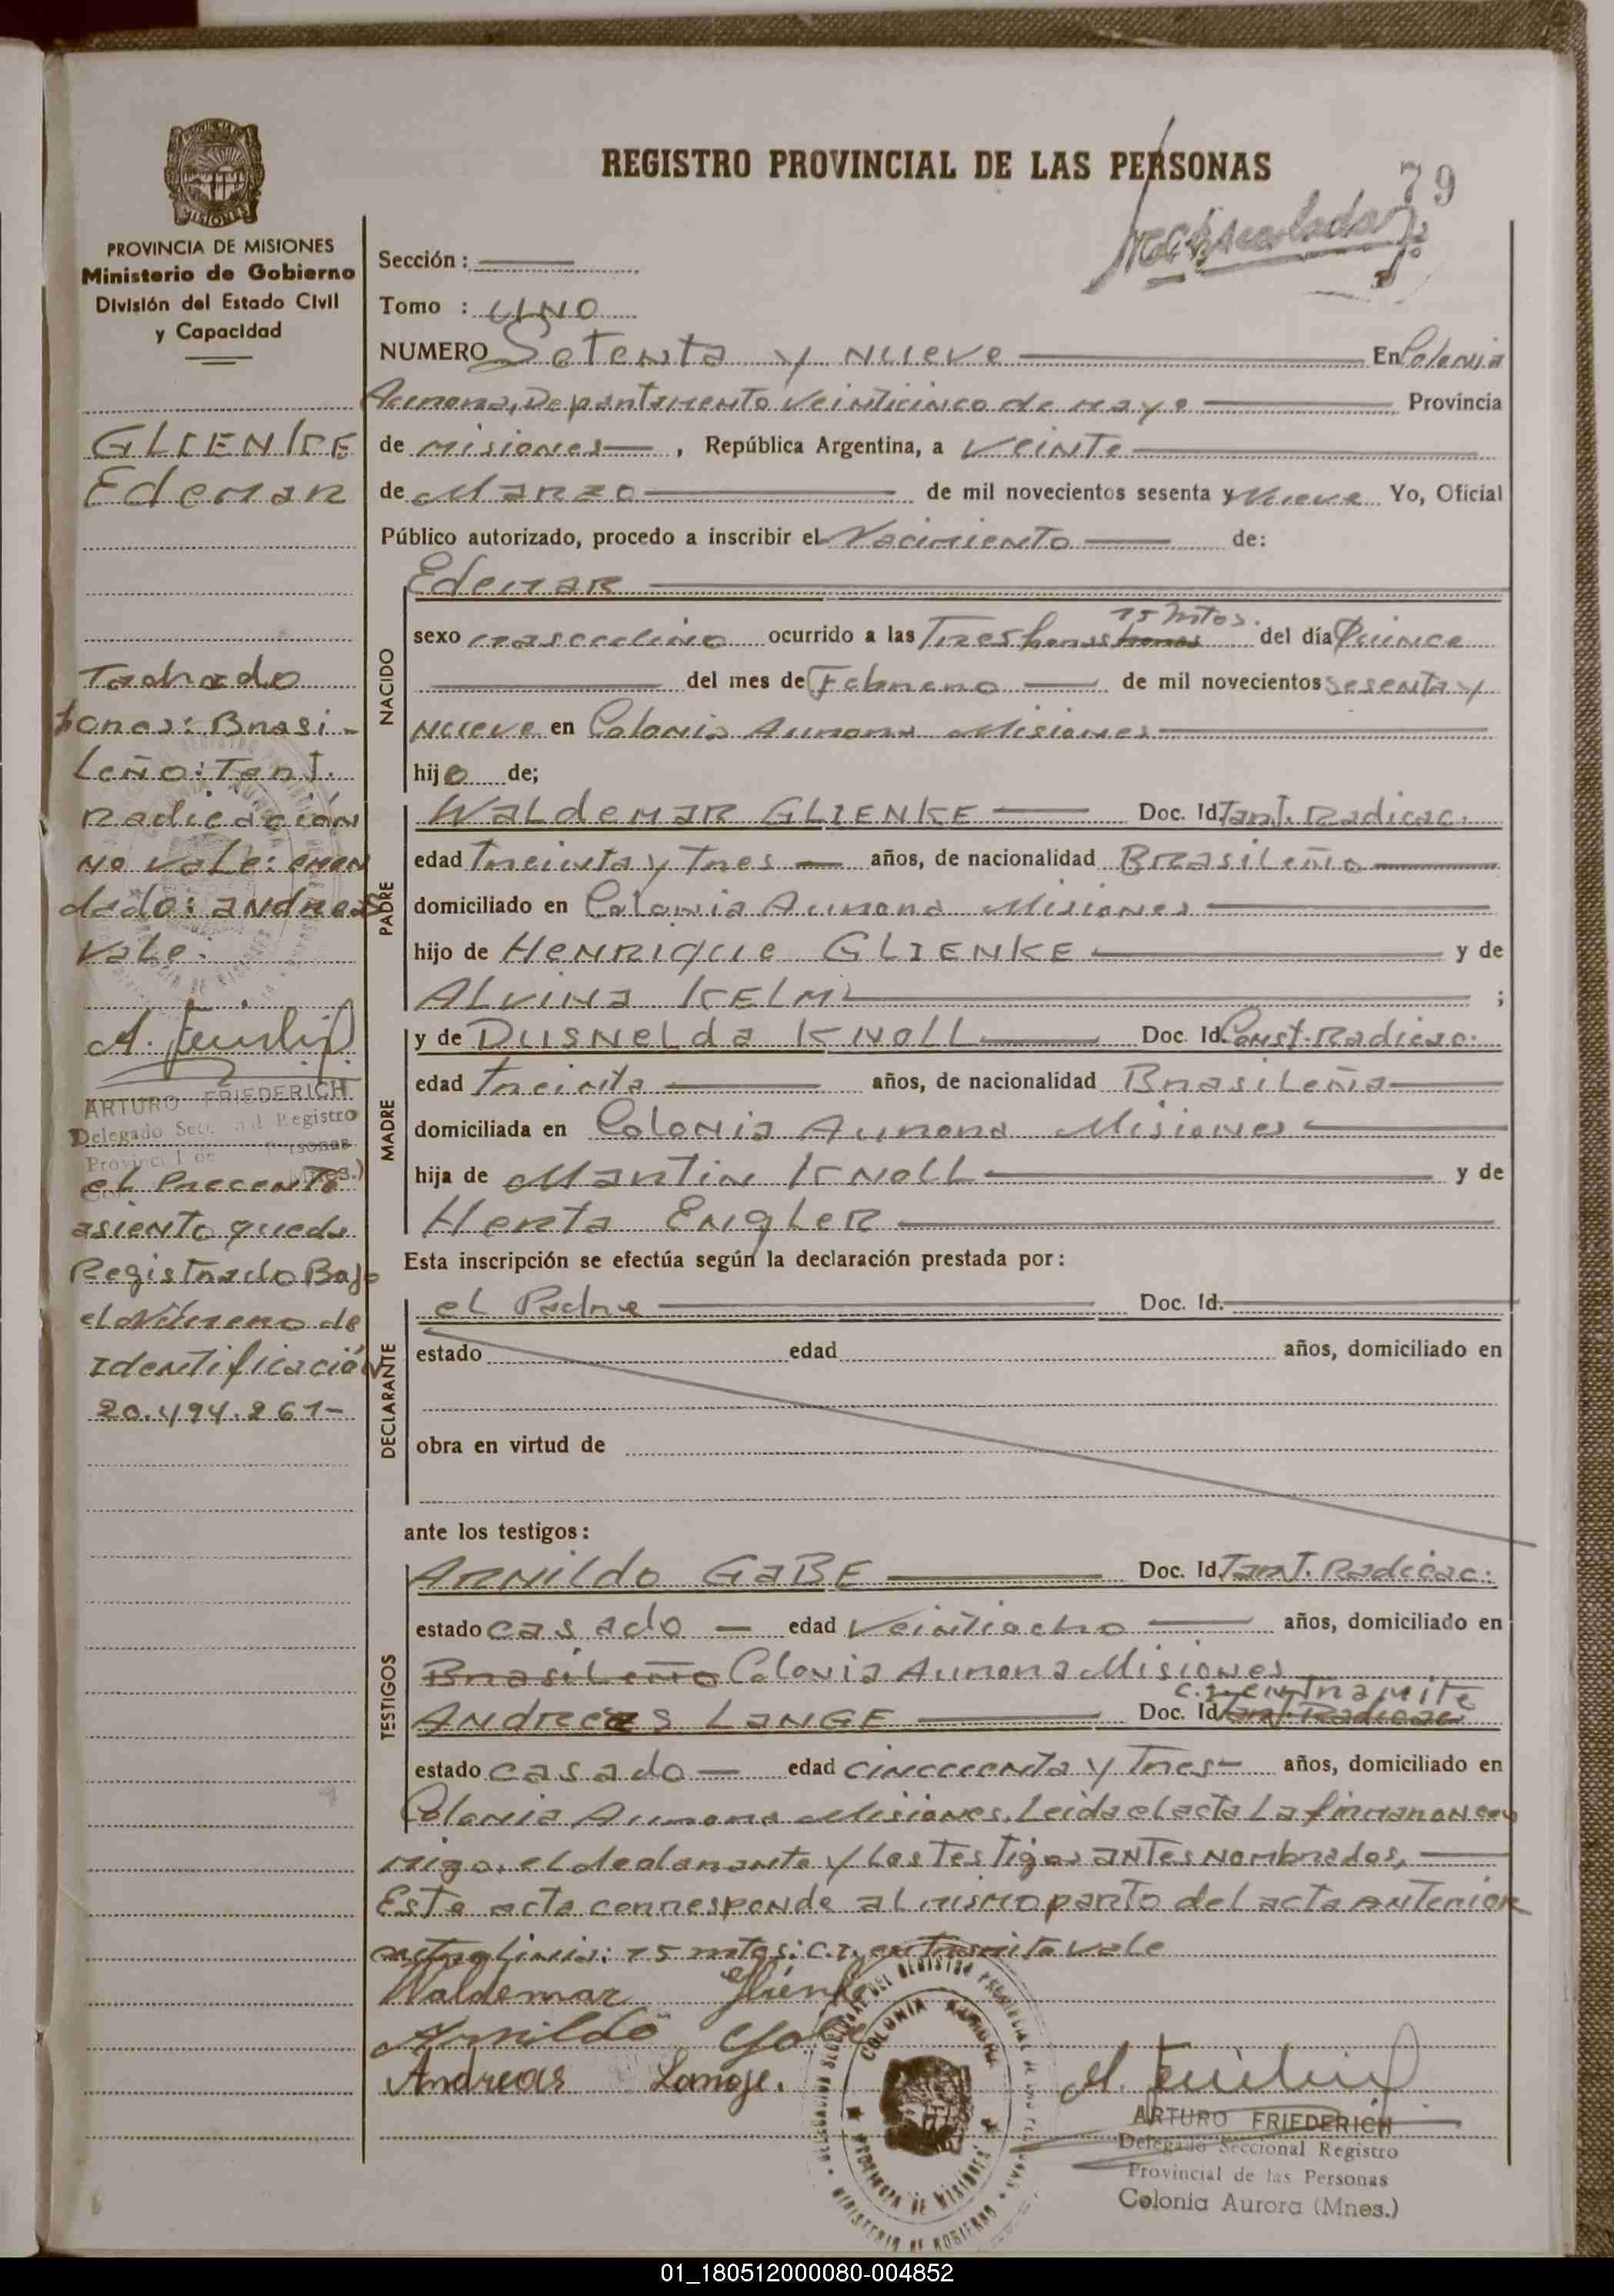 REGISTRO PROVINCIAL DE LAS PERSONAS
79
PROVINCIA DE MISIONES
Ministerio de Gobierno
División del Estado Civil
y Capacidad
GLIENKE
Edemar
Tachado
horas: Brasi-
Leño: Tarj.
Radicación
no vale: enmen
dado: andreas
vale.
ARTURO FRIEDERICH
Delegado Seccional Registro
el Precente
asiento queda
Registrado Bajo
el Número de
Identificación
20.494.261-
Sección :
Tomo : UNO
NUMERO Setenta y nueve En Colonia
Aurora, Departamento Veinticinco de mayo Provincia
de misiones , República Argentina, a Veinte
de Marzo de mil novecientos sesenta y Nueve Yo, Oficial
Público autorizado, procedo a inscribir el Nacimiento de:
NACIDO
Edemar
15 mtos.
sexo masculino ocurrido a las Tres horas horas del día Quince
del mes de Febrero de mil novecientos sesenta y
nueve en Colonia Aurora Misiones
hijo de;
PADRE
Waldemar GLIENKE Doc. Id. Tarj. Radicac.
edad Treinta y Tres años, de nacionalidad Brasileño
domiciliado en Colonia Aurora Misiones
hijo de Henrique GLIENKE y de
Alvina KELM ;
MADRE
y de Dusnelda KNOLL Doc. Id. Const. Radicac.
edad Treinta años, de nacionalidad Brasileña
domiciliada en Colonia Aurora Misiones
hija de Martin Knoll y de
Herta Engler
Esta inscripción se efectúa según la declaración prestada por:
DECLARANTE
el Padre Doc. Id.
estado edad años, domiciliado en
obra en virtud de
ante los testigos:
TESTIGOS
Arnildo GABE Doc. Id. Tarj. Radicac.
estado casado edad Veintiocho años, domiciliado en
Brasileño Colonia Aurora Misiones
c.i. en Tramite
Andreas LANGE Doc. Id. Tarj. Radicac.
estado casado edad cincuenta y Tres años, domiciliado en
Colonia Aurora Misiones. Leida el acta La firmaron con
migo. el declarante y los Testigos antes nombrados,
Esta acta corresponde al mismo parto del acta anterior
15 mtos: c.i. en Tramite vale
Waldemar Glienke
Arnildo Gabe
Andreas Lange.
COLONIA AURORA
PROVINCIA DE MISIONES
ARTURO FRIEDERICH
Delegado Seccional Registro
Provincial de las Personas
Colonia Aurora (Mnes.)
01_180512000080-004852